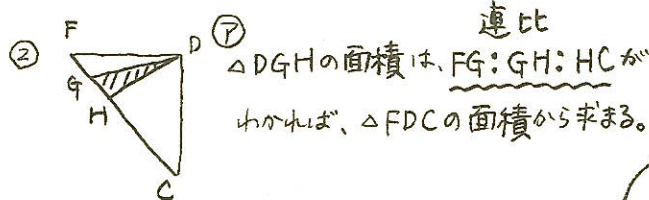 ② F D ㋐ 連比
G △DGHの面積は、FG:GH:HCが
H わかれば、△FDCの面積から求まる。
C